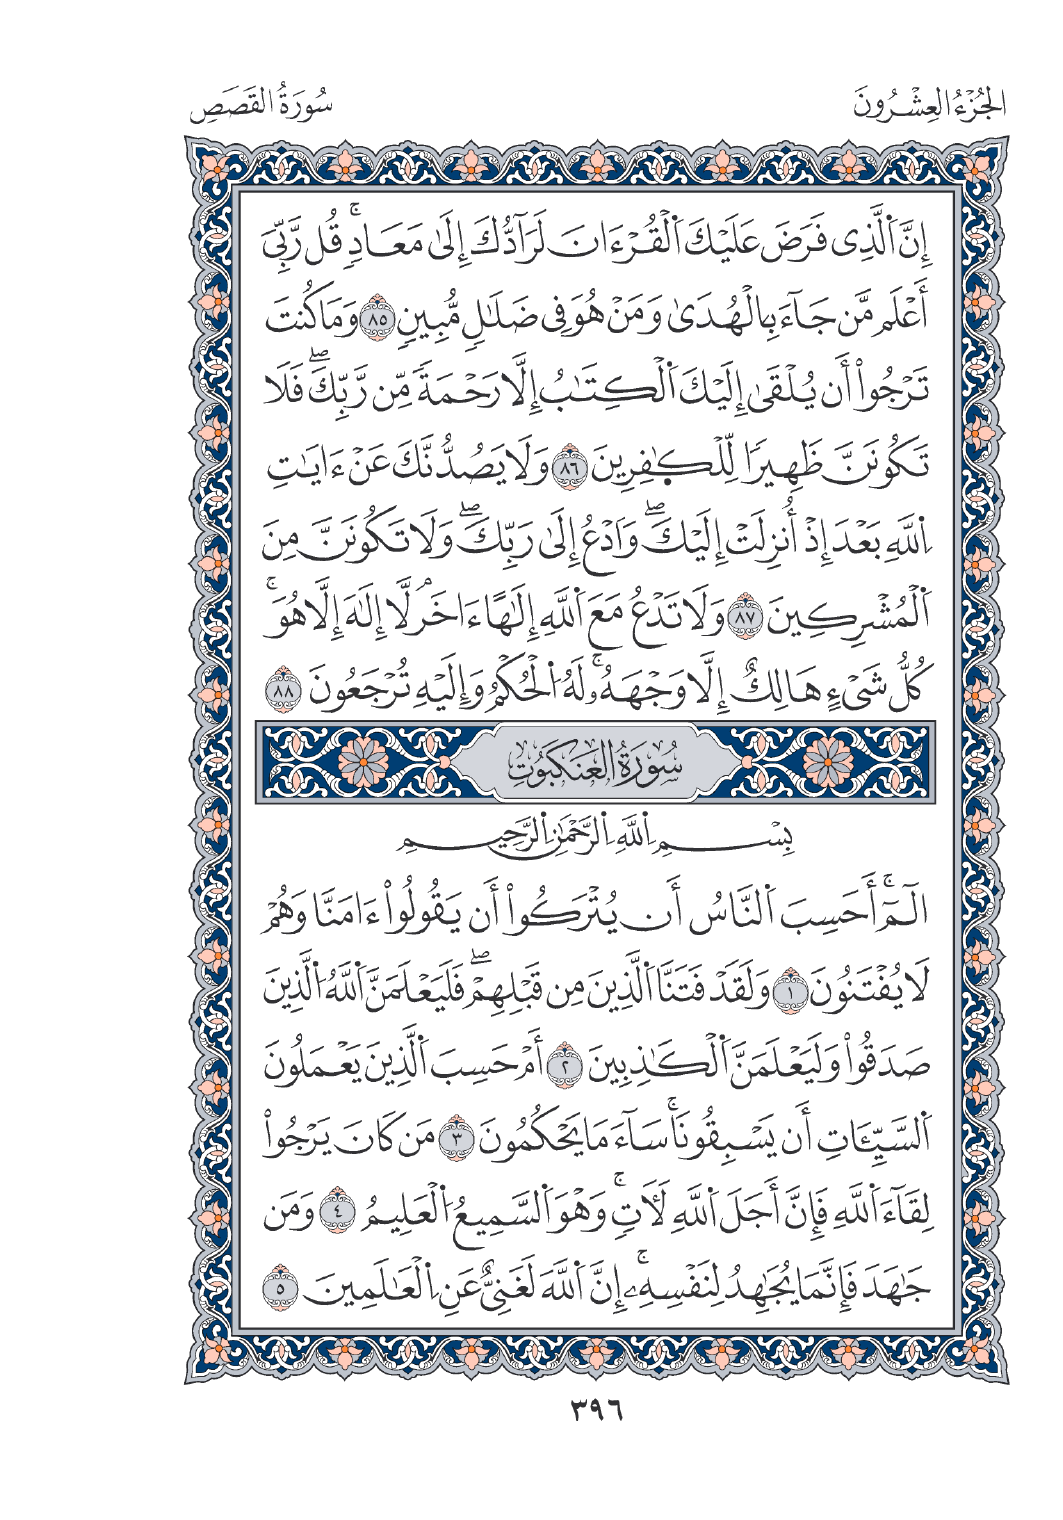 الجُزْءُ العِشْرُونَ
سُورَةُ القَصَصِ
إِنَّ اَ۬لَّذِے فَرَضَ عَلَيْكَ اَ۬لْقُرْءَانَ لَرَآدُّكَ إِلَىٰ مَعَادٖۚ قُل رَّبِّيَ
أَعْلَم مَّن جَآءَ بِالْهُدَىٰ وَمَنْ هُوَ فِے ضَلَٰلٖ مُّبِينٖ ٨٥ وَمَا كُنتَ
تَرْجُواْ أَن يُلْقَىٰ إِلَيْكَ اَ۬لْكِتَٰبُ إِلَّا رَحْمَةٗ مِّن رَّبِّكَۖ فَلَا
تَكُونَنَّ ظَهِيراٗ لِّلْكٰ۪فِرِينَ ٨٦ وَلَا يَصُدُّنَّكَ عَنْ ءَايَٰتِ
اِ۬للَّهِ بَعْدَ إِذْ أُنزِلَتْ إِلَيْكَۖ وَادْعُ إِلَىٰ رَبِّكَۖ وَلَا تَكُونَنَّ مِنَ
اَ۬لْمُشْرِكِينَ ٨٧ وَلَا تَدْعُ مَعَ اَ۬للَّهِ إِلَٰهاً ءَاخَرَۘ لَّا إِلَٰهَ إِلَّا هُوَۚ
كُلُّ شَےْءٍ هَالِكٌ إِلَّا وَجْهَهُۥۚ لَهُ اُ۬لْحُكْمُ وَإِلَيْهِ تُرْجَعُونَ ٨٨
سُورَةُ العَنكَبُوتِ
بِسْمِ اِ۬للَّهِ اِ۬لرَّحْمَٰنِ اِ۬لرَّحِيمِ
أَلَٓمِّٓۚ أَحَسِبَ اَ۬لنَّاسُ أَن يُتْرَكُواْ أَن يَقُولُواْ ءَامَنَّا وَهُمْ
لَا يُفْتَنُونَ ١ وَلَقَدْ فَتَنَّا اَ۬لَّذِينَ مِن قَبْلِهِمْۖ فَلَيَعْلَمَنَّ اَ۬للَّهُ اُ۬لَّذِينَ
صَدَقُواْ وَلَيَعْلَمَنَّ اَ۬لْكَٰذِبِينَ ٢ أَمْ حَسِبَ اَ۬لَّذِينَ يَعْمَلُونَ
اَ۬لسَّيِّـَٔاتِ أَن يَسْبِقُونَاۚ سَآءَ مَا يَحْكُمُونَ ٣ مَن كَانَ يَرْجُواْ
لِقَآءَ اَ۬للَّهِ فَإِنَّ أَجَلَ اَ۬للَّهِ لَأٓتٖۚ وَهْوَ اَ۬لسَّمِيعُ اُ۬لْعَلِيمُ ٤ وَمَن
جَٰهَدَ فَإِنَّمَا يُجَٰهِدُ لِنَفْسِهِۦۚ إِنَّ اَ۬للَّهَ لَغَنِيٌّ عَنِ اِ۬لْعَٰلَمِينَ ٥
٣٩٦